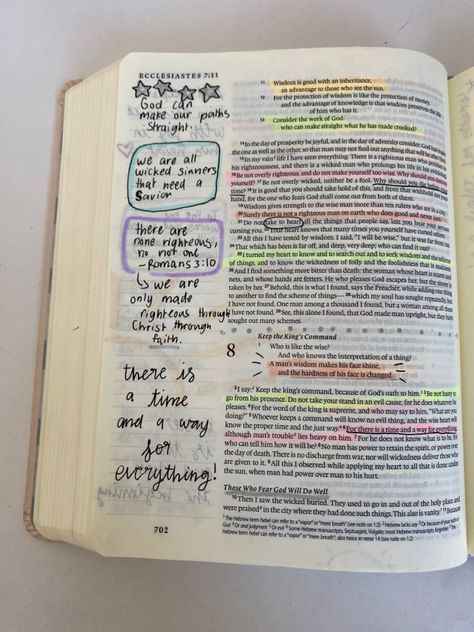 ECCLESIASTES 7:11
God can
make our paths
straight.
we are all
wicked sinners
that need a
Savior
there are
none righteous,
no not one
- Romans 3:10
↳ we are
only made
righteous through
Christ through
faith.
there is
a time
and a way
for
everything!
702
11 Wisdom is good with an inheritance,
an advantage to those who see the sun.
12 For the protection of wisdom is like the protection of money,
and the advantage of knowledge is that wisdom preserves the life
of him who has it.
13 Consider the work of God:
who can make straight what he has made crooked?
14 In the day of prosperity be joyful, and in the day of adversity consider: God has made
the one as well as the other, so that man may not find out anything that will be after him.
15 In my vain life I have seen everything. There is a righteous man who perishes in
his righteousness, and there is a wicked man who prolongs his life in his evildoing.
16 Be not overly righteous, and do not make yourself too wise. Why should you destroy
yourself? 17 Be not overly wicked, neither be a fool. Why should you die before your
time? 18 It is good that you should take hold of this, and from that withhold not your
hand, for the one who fears God shall come out from both of them.
19 Wisdom gives strength to the wise man more than ten rulers who are in a city.
20 Surely there is not a righteous man on earth who does good and never sins.
21 Do not take to heart all the things that people say, lest you hear your servant
cursing you. 22 Your heart knows that many times you yourself have cursed others.
23 All this I have tested by wisdom. I said, "I will be wise," but it was far from me.
24 That which has been is far off, and deep, very deep; who can find it out?
25 I turned my heart to know and to search out and to seek wisdom and the scheme
of things, and to know the wickedness of folly and the foolishness that is madness.
26 And I find something more bitter than death: the woman whose heart is snares and
nets, and whose hands are fetters. He who pleases God escapes her, but the sinner is
taken by her. 27 Behold, this is what I found, says the Preacher, while adding one thing
to another to find the scheme of things— 28 which my soul has sought repeatedly, but
I have not found. One man among a thousand I found, but a woman among all these
I have not found. 29 See, this alone I found, that God made man upright, but they have
sought out many schemes.
Keep the King's Command
8 Who is like the wise?
And who knows the interpretation of a thing?
A man's wisdom makes his face shine,
and the hardness of his face is changed.
2 I say: Keep the king's command, because of God's oath to him. 3 Be not hasty to
go from his presence. Do not take your stand in an evil cause, for he does whatever he
pleases. 4 For the word of the king is supreme, and who may say to him, "What are you
doing?" 5 Whoever keeps a command will know no evil thing, and the wise heart will
know the proper time and the just way. 6 For there is a time and a way for everything,
although man's trouble lies heavy on him. 7 For he does not know what is to be, for
who can tell him how it will be? 8 No man has power to retain the spirit, or power over
the day of death. There is no discharge from war, nor will wickedness deliver those who
are given to it. 9 All this I observed while applying my heart to all that is done under
the sun, when man had power over man to his hurt.
Those Who Fear God Will Do Well
10 Then I saw the wicked buried. They used to go in and out of the holy place and
were praised in the city where they had done such things. This also is vanity. 11 Because